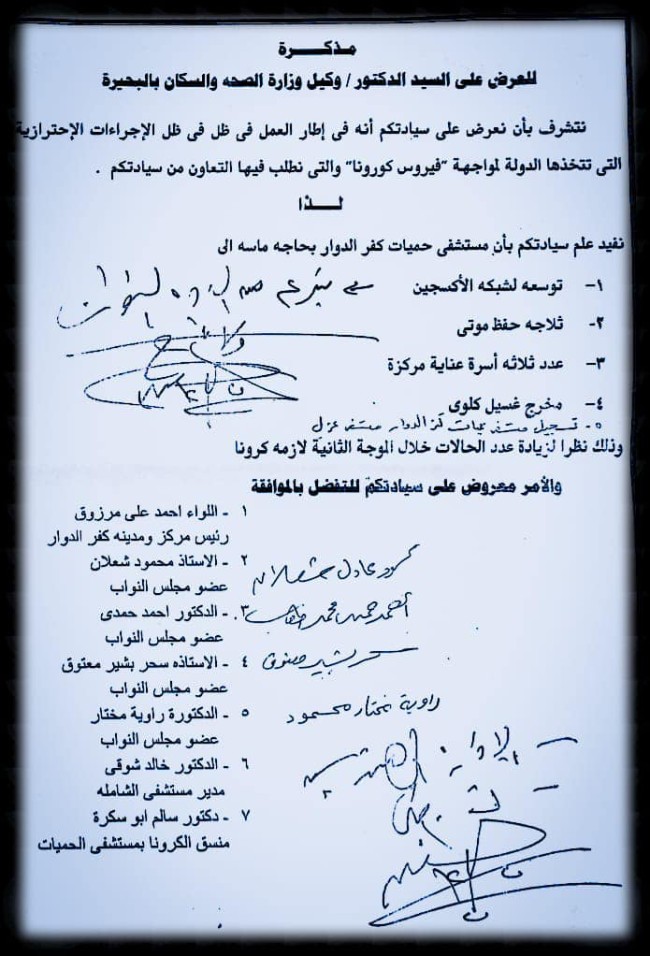 مذكـــرة
للعرض على السيد الدكتور / وكيل وزارة الصحه والسكان بالبحيرة
نتشرف بأن نعرض على سيادتكم أنه فى إطار العمل فى ظل فى ظل الإجراءات الإحترازية
التى تتخذها الدولة لمواجهة "فيروس كورونا" والتى نطلب فيها التعاون من سيادتكم .
لـــذا
نفيد علم سيادتكم بأن مستشفى حميات كفر الدوار بحاجه ماسه الى
١- توسعه لشبكه الأكسجين
٢- ثلاجه حفظ موتى
٣- عدد ثلاثه أسرة عناية مركزة
٤- مخرج غسيل كلوى
٥- تسجيل مستشفى حميات كفر الدوار مستشفى عزل
وذلك نظرا لزيادة عدد الحالات خلال الموجة الثانية لازمه كرونا
والأمر معروض على سيادتكم للتفضل بالموافقة
١ - اللواء احمد على مرزوق
رئيس مركز ومدينه كفر الدوار
٢ - الاستاذ محمود شعلان
عضو مجلس النواب
محمود عادل شعلان
٣ - الدكتور احمد حمدى
عضو مجلس النواب
أحمد حمدى محمد خطاب
٤ - الاستاذه سحر بشير معتوق
عضو مجلس النواب
سحر بشير معتوق
٥ - الدكتورة راوية مختار
عضو مجلس النواب
راوية مختار محمود
٦ - الدكتور خالد شوقى
مدير مستشفى الشامله
٧ - دكتور سالم ابو سكرة
منسق الكرونا بمستشفى الحميات